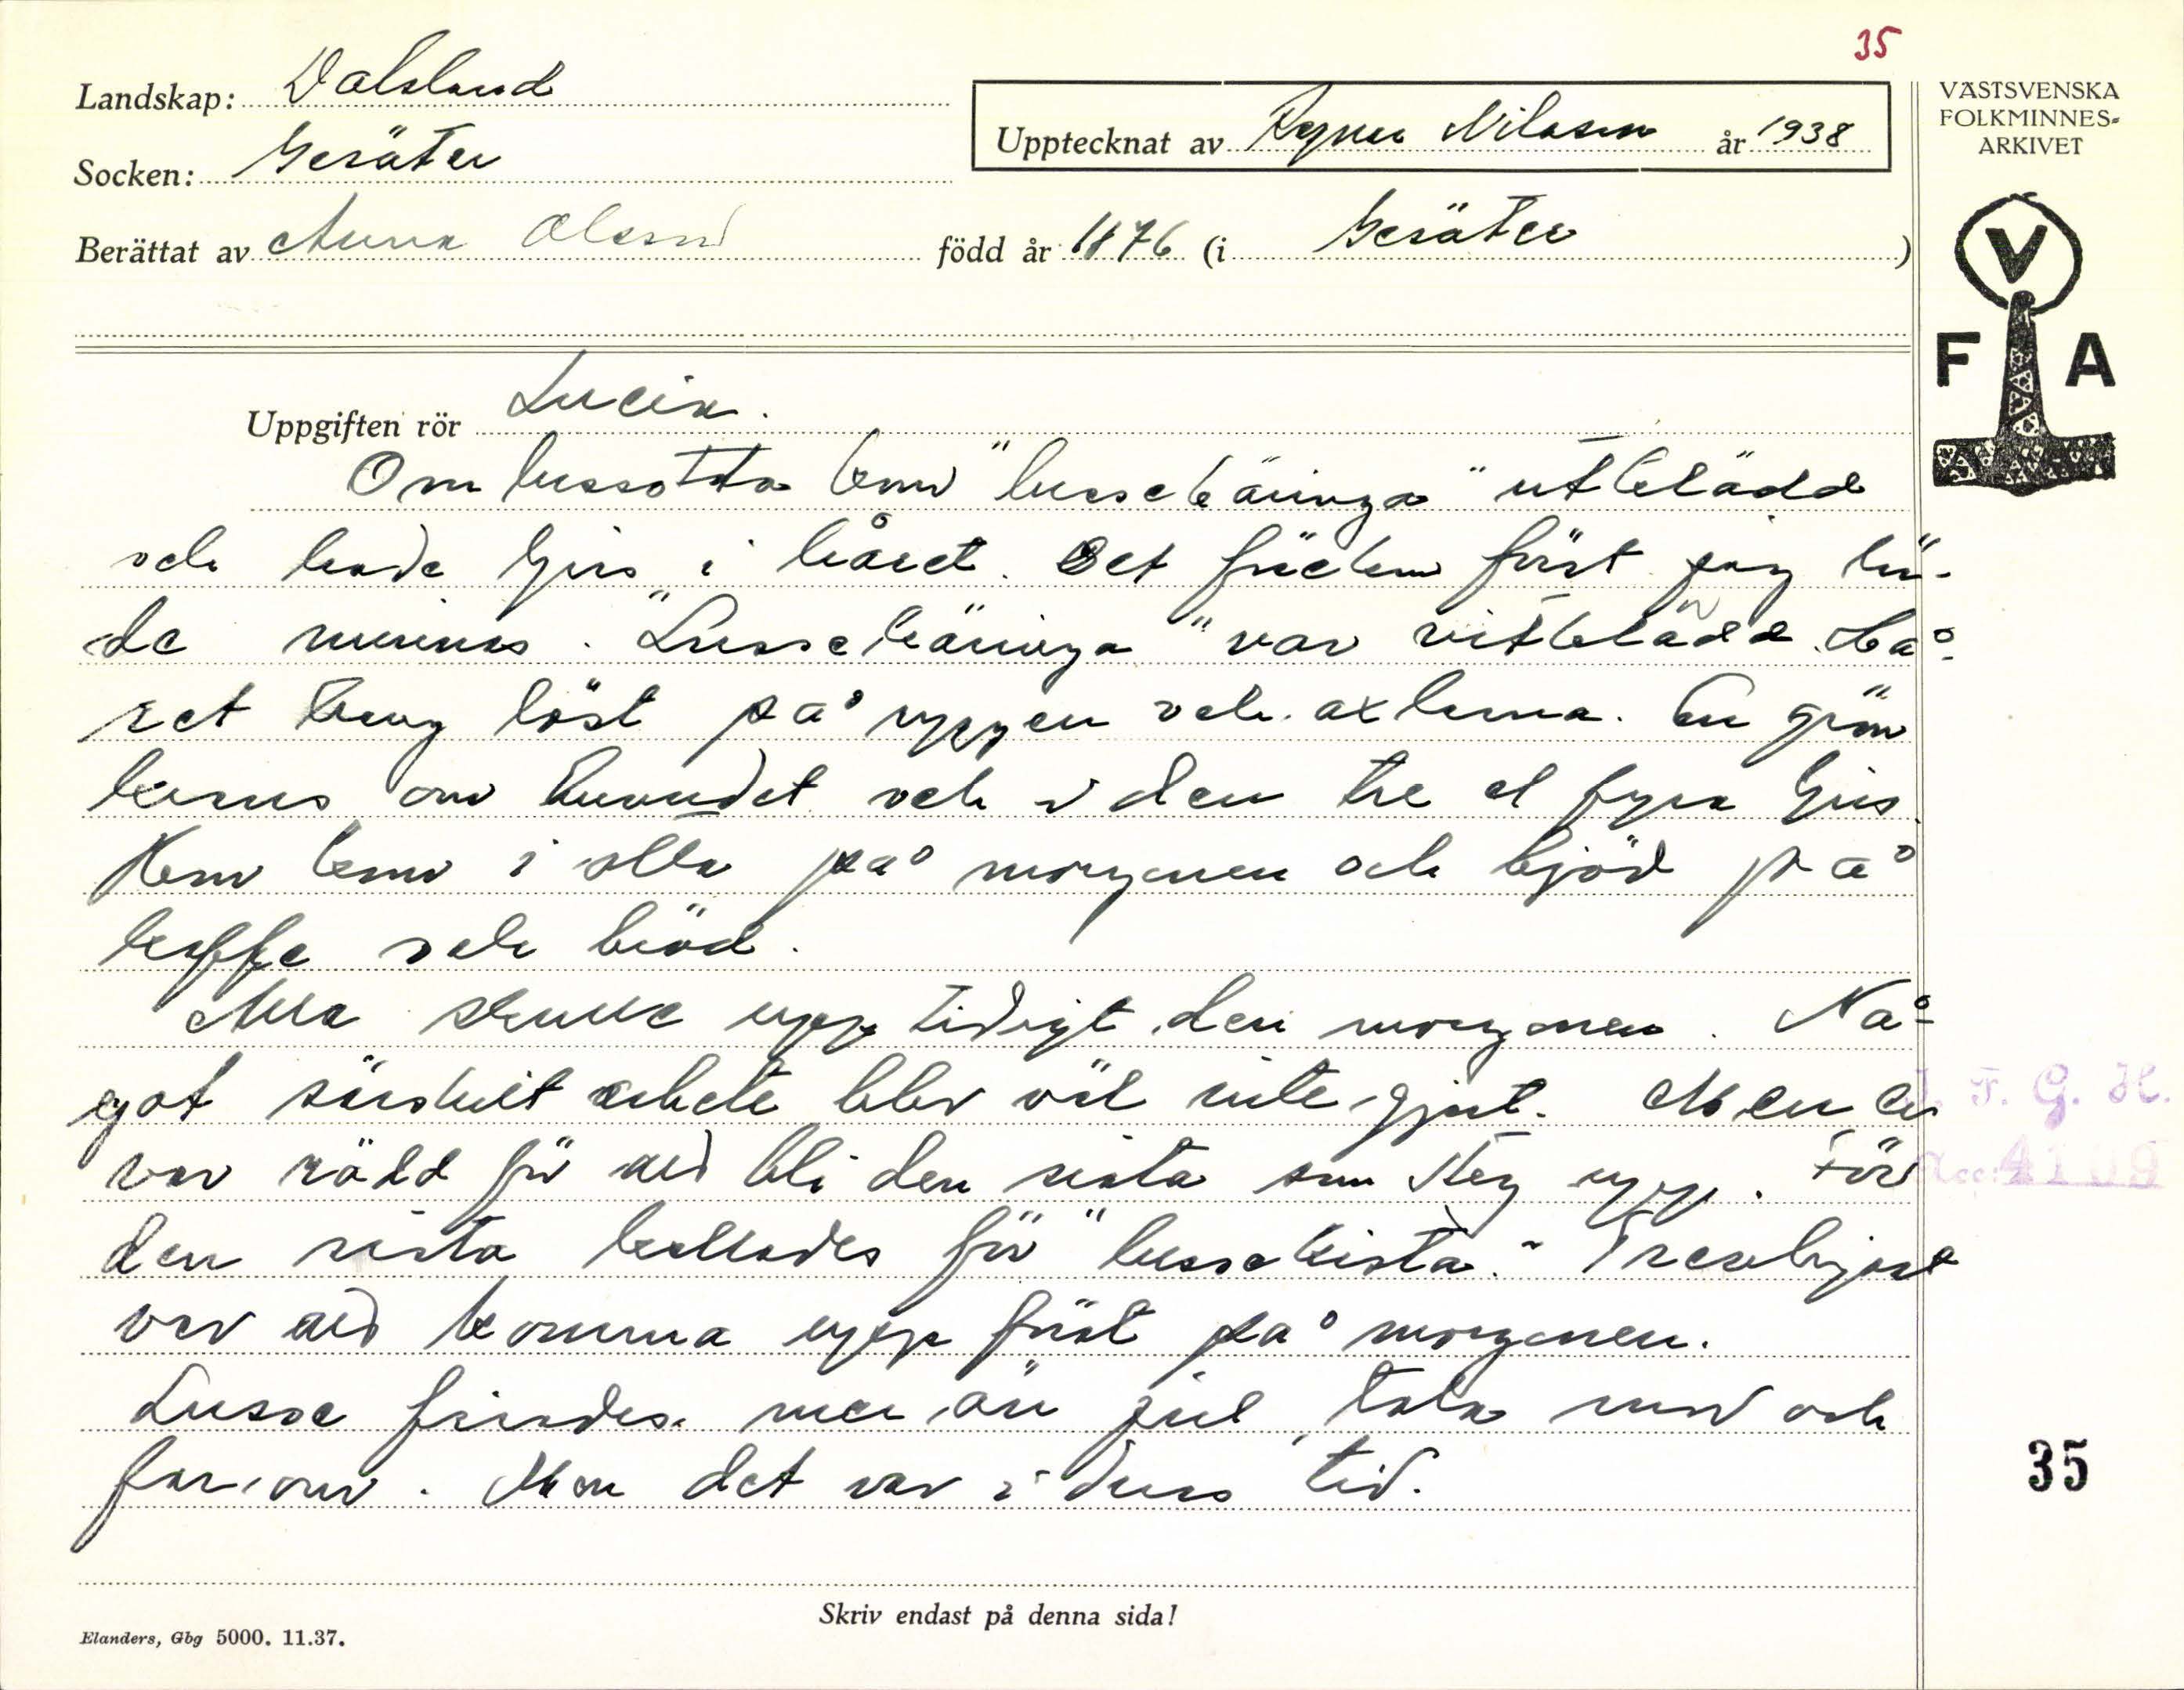 35
Landskap: Dalsland
Socken: Gesäter
Upptecknat av Ragnar Nilsson år 1938
VÄSTSVENSKA
FOLKMINNES-
ARKIVET
Berättat av Anna Olsson född år 1876 (i Gesäter)
V
F A
Uppgiften rör Lucia.
Om lussotta kom "lussekäringa" utklädd
och hade ljus i håret. Det fick först jag
de minnas. "Lussekäringa" var vitklädd. Hå-
ret hang löst på ryggen och axlarna. En grön
krans om huvudet och i den tre el fyra ljus.
Hon kom i otta på morgonen och bjöd på
kaffe och bröd.
Alla skulle upp tidigt den morgonen. Nå-
got särskilt arbete blev väl inte gjort. Men en
var rädd för att bli den sista som steg upp. För
den sista kallades för "lussekista." Trevligast
var att komma upp först på morgonen.
Lusse firades mer än jul, tala mor och
far om. Men det var i deras tid.
I. F. G. H.
Acc: 4109
35
Skriv endast på denna sida!
Elanders, Gbg 5000. 11.37.